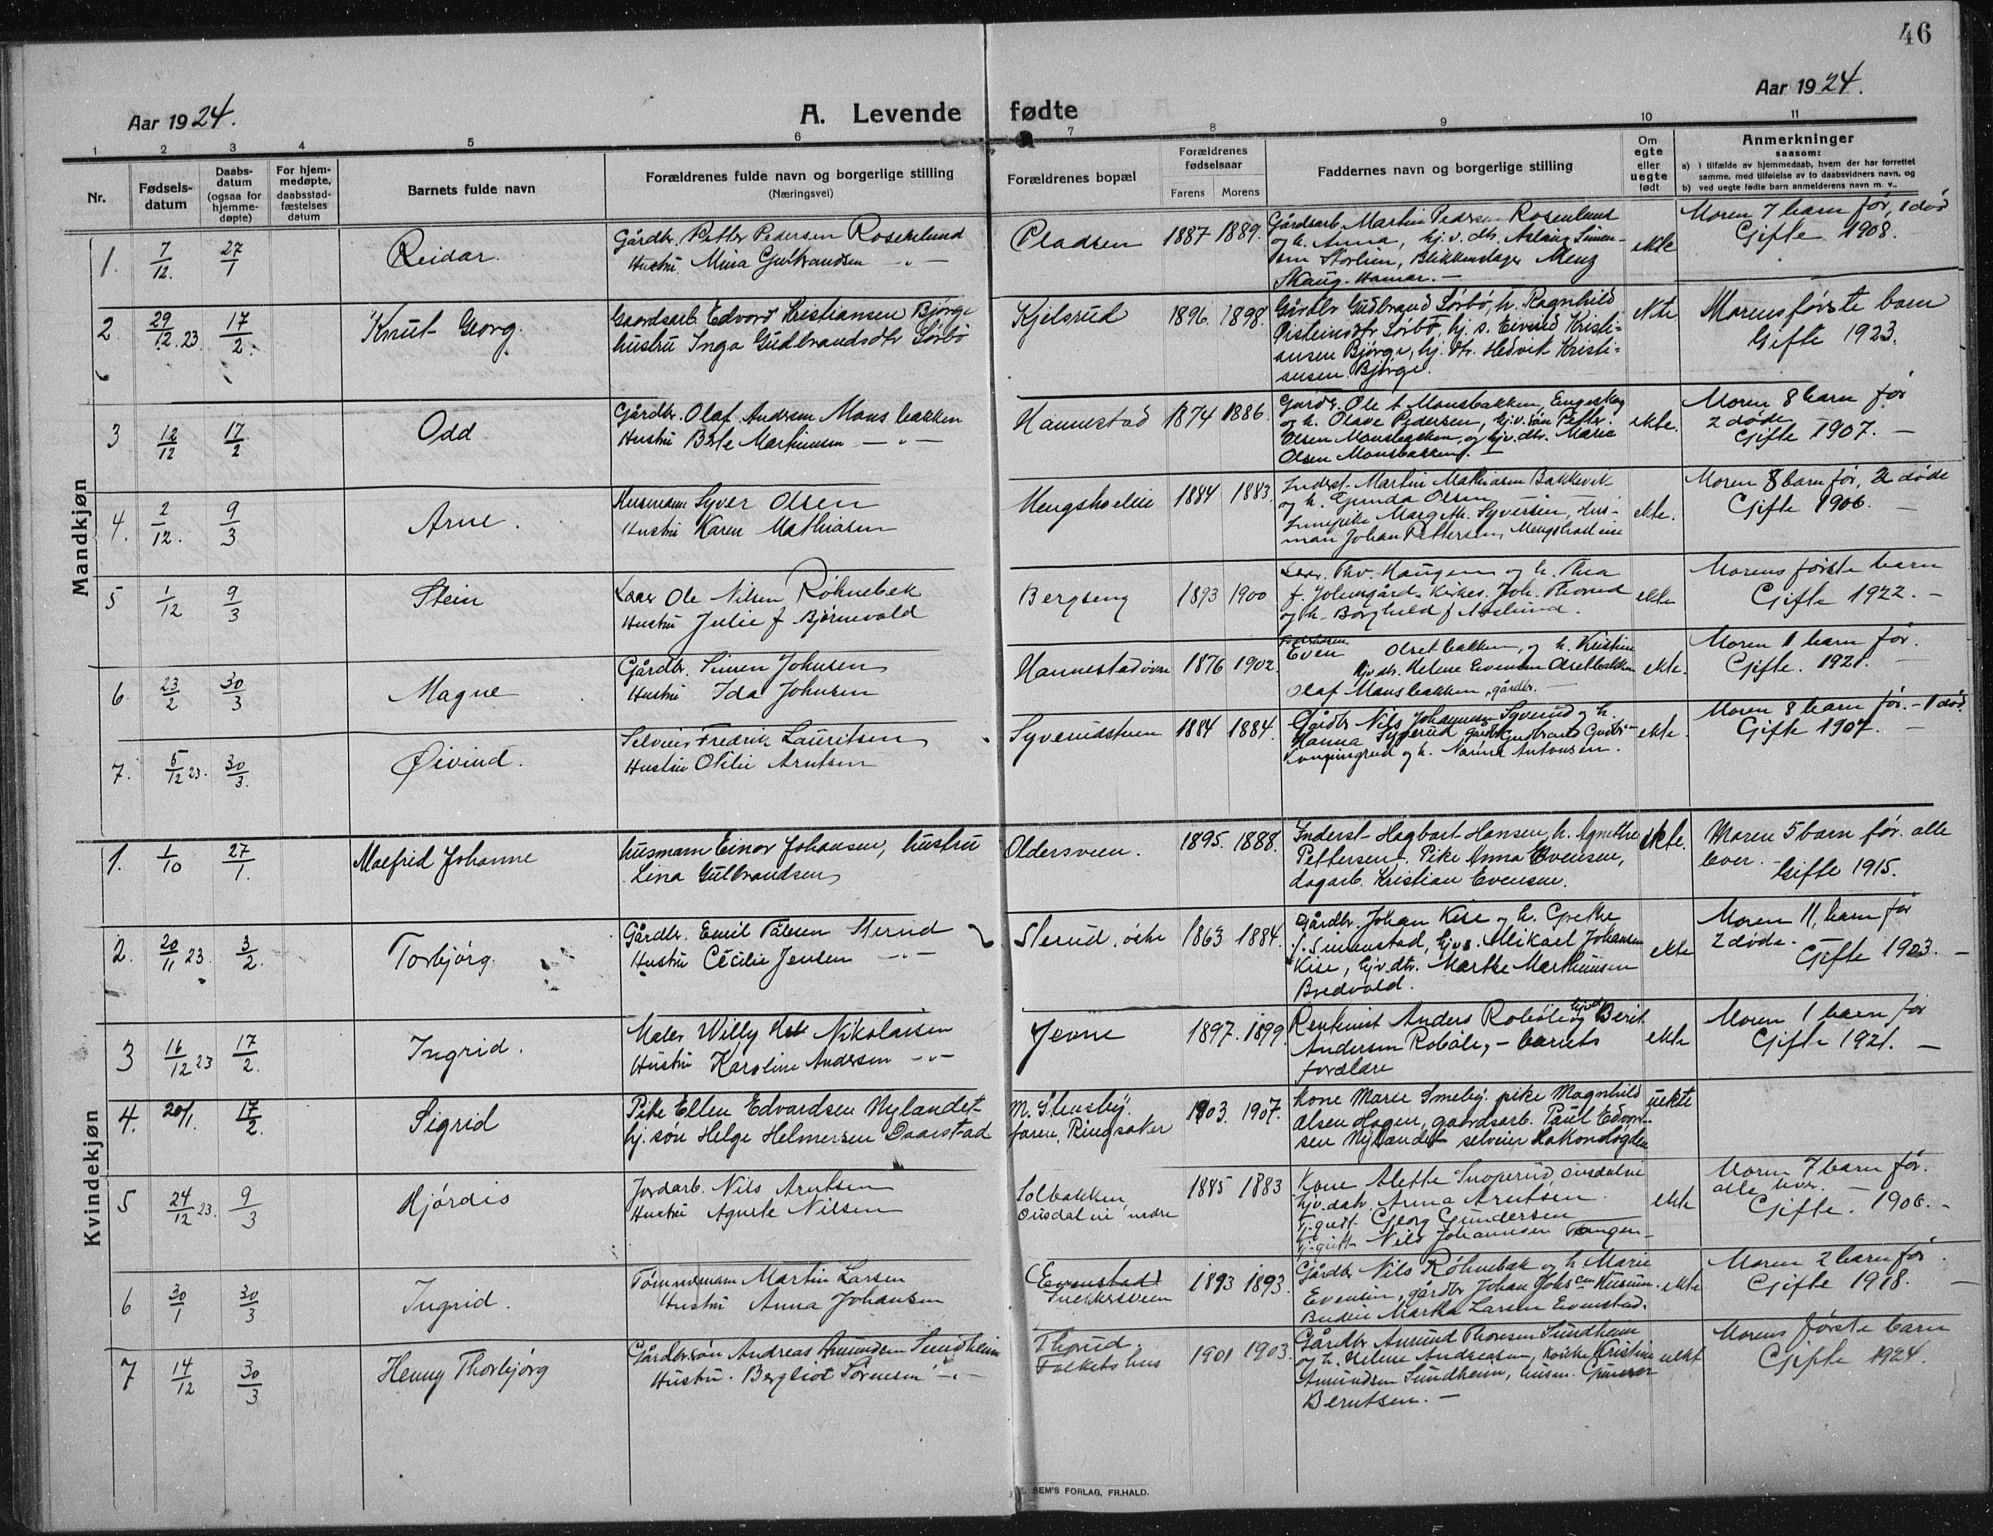 46
Aar 1924.
A. Levende fødte
Aar 1924.
1 2 3 4 5 6 7 8 9 10 11
Nr.
Fødsels-
datum
Daabs-
datum
(ogsaa for
hjemme-
døpte)
For hjem-
medøpte,
daabsstad-
fæstelses
datum
Barnets fulde navn
Forældrenes fulde navn og borgerlige stilling
(Næringsvei)
Forældrenes bopæl
Forældrenes
fødselsaar
Farens Morens
Faddernes navn og borgerlige stilling
Om
egte
eller
uegte
født
Anmerkninger
saasom:
a) I tilfælde av hjemmedaab, hvem der har forrettet
samme, med tilføielse av to daabsvidners navn, og
b) ved uegte fødte barn anmelderens navn m. v..
Mandkjøn
1. 7/12. 27/1 Reidar.
Gårdbr. Petter Pedersen Rosenlund
Hustru Mina Gulbrandsen -"-
Pladsen 1887 1889.
Gårdsarb. Martin Pedersen Rosenlund
og h. Anna, hj.v. dtr. Aslaug Simen-
sen Storlien, Blikkenslager Menz
Skaug-Hamar. -
ekte
Moren 7 barn før, 1 død
Gifte 1908.
2. 29/12.23 17/2. Knut Georg.
Gaardsarb. Edvard Kristiansen Bjørge
hustru Inga Gudbrandsdtr Sørbø
Kjelsrud 1896. 1898.
Gårdbr Gudbrand Sørbø, h. Ragnhild
Øisteinsdtr Sørbø, hj. s. Eivind Kristi-
ansen Bjørge, hj. dtr. Hedvik Kristi-
ansen Bjørge.
ekte
Morens første barn
Gifte 1923.
3 12/12 17/2 Odd
Gårdbr. Olaf Andersen Monsbakken
Hustru Berte Martinsen -"-
Hannestad 1874 1886.
Gardbr. Ole A Monsbakken, Engeskog
og h. Olave Pedersen, hj.v. søn Petter
Olsen Monsbakken, og hj.v. dtr. Marie
Olsen Monsbakken.
ekte.
Moren 8 barn før
2 døde
Gifte 1907. -
4. 2/12. 9/3 Arne.
Husmann Syver Olsen
Hustru Karen Mathiasen
Mengshoeleie 1884 1883.
Inderst. Martin Mathiasen Bakkevik
og h. Gunda Olsen
Margith Syversen, Hus-
man Johan Pettersen, Mengshoel eie
ekte.
Moren 8 barn før, 2 døde
Gifte 1906. -
5 1/12 9/3 Stein
Lærer Ole Nilsen Røhnebek
Hustru Julie f Bjørnevold
Bergseng 1893 1900
Lærer. Thv. Haugen og h. Thea
f. Johnsgård. Kirkes. Joh. Thorud
og h. Borghild f Aaslund.
ekte
Morens første barn
Gifte 1922. -
6. 23/2 30/3 Magne
Gårdbr. Simen Johnsen
Hustru Ida Johnsen
Hannestad øvre 1876 1902.
Even Olsetbakken, og h. Kristine
hjv.dtr. Helene Evensen Olsetbakken
Olaf Monsbakken, gårdbr. -
ekte.
Moren 1 barn før.
Gifte. 1921. -
7. 5/12 23. 30/3 Øivind.
Selveier Fredrik Lauritsen
Hustru Otilie Arntsen
Syverudstuen 1884 1884.
Gårdbr Nils Johannesen Syverud og h.
Hanna Syverud gårdbr Gudbrand Gudbr-
og h. Nanna Antonsen.
ekte.
Moren 8 barn før. - 1 død.
Gifte 1907. -
Kvindekjøn
1. 1/10 27/1. Malfrid Johanne
husmann Einar Johansen, hustru
Lina Gulbrandsen
Oldersveen. 1895. 1888.
Inderst Hagbart Hansen, h. Agnethe
Pettersen. Pike Anna Evensen,
dagarb. Kristian Evensen.
ekte.
Moren 5 barn før. alle
lever. - Gifte 1915.
2. 20/11 23. 3/2. Torbjørg.
Gårdbr. Emil Pålsen Sterud
Hustru Cecilie Jensen -"-
Sterud, østre 1863 1884.
Gårdbr. Johan Kise og h. Grethe
f. Simenstad, hjvs. Mikael Johansen
Kise, hjv.dtr. Marthe Marthinsen
Bredvold.
ekte
Moren 11, barn før
2 døde.
Gifte 1903. -
3 16/12 23 17/2. Ingrid.
Maler Willy Nikolaisen
Hustru Karoline Andersen -"-
Jevne 1897. 1899.
Rentenist Anders Robøle og hjvd Berit
Andersen Robøle, - barnets
forældre
ekte
Moren 1 barn før
Gifte 1921. -
4. 20/1. 17/2. Sigrid
Pike Ellen Edvardsen Nylandet
hj. søn Helge Helmersen Daarstad
M. Stensby.
faren. Ringsaker 1903. 1907.
Kone Marie Smeby. pike Magnhild
Olsen Hagen, gaardsarb. Paul Edvard-
sen Nylandet selveier Håkon Løgden
uekte
5 24/12 23. 9/3 Hjørdis
Jordarb. Nils Arntsen
Hustru Agnete Nilsen
Solbakken
Ousdal eie nedre 1885 1883
Kone Alette Snoperud, Ousdaleie
hjv.datr Anna Arntsen.
Georg Gundersen
Nils Johannsen Tangen -
ekte
Moren 7 barn før.
alle lever. -
Gifte. 1906. -
6 30/1 30/3 Ingrid.
Tømmermann Martin Larsen
Hustru Anna Johansen
(Evenstad)
Snekkersveen 1893 1893.
Gårdbr Nils Røhnebæk og h Marie
Evensen, gårdbr Johan Johsen Husum.
Budeie Martha Larsen Evenstad.
ekte
Moren 2 barn før.
Gifte 1918. -
7 14/12 30/3 Henny Thorbjørg
Gårdbr.søn Andreas Amundsen Sundheim
Hustru. Bergliot Sørensen -"-
Thorud
Folkets hus 1901 1903.
Gårdbr Amund Thoresen Sundheim
og h. Helene Andreasen, Kokke Kristine
Amundsen Sundheim, husm. Gunerer
Berntsen. -
uekt
Morens første barn
Gifte 1924.
E. SEM'S FORLAG, FR.HALD.